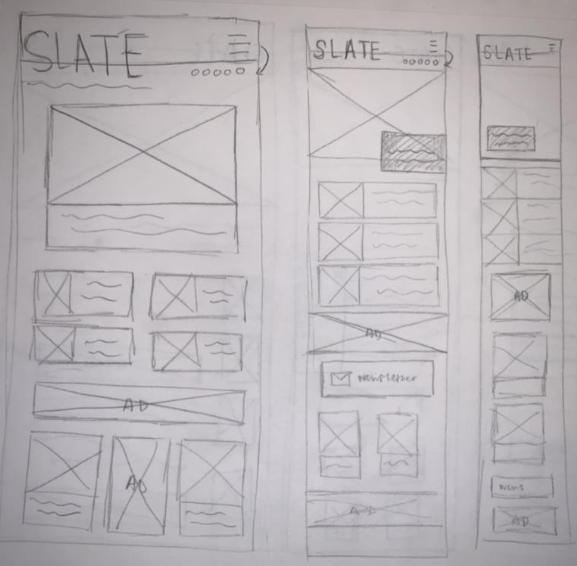 SLATE
AD
AD
SLATE
AD
Newsletter
AD
SLATE
AD
News
AD